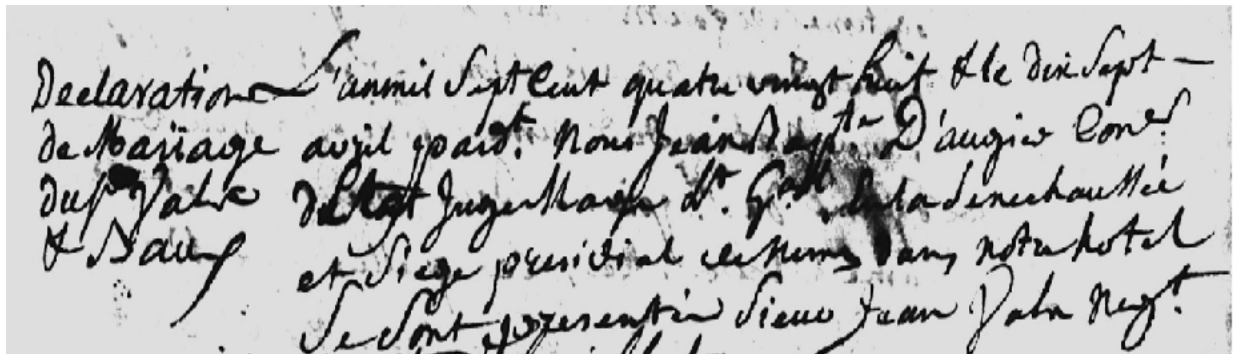 Declaration
de Mariage
du Sr Valz
& Baux
L'an mil Sept Cent quatre vingt huit & le dix Sept
avril pard.t Nous Jean Bap.te D'augier Con.er
d'Etat Juge Mage Lt. G.al de la Senechaussée
et Siege presidial de Nimes dans notre hotel
Se Sont presentés Sieur Jean Valz Neg.t